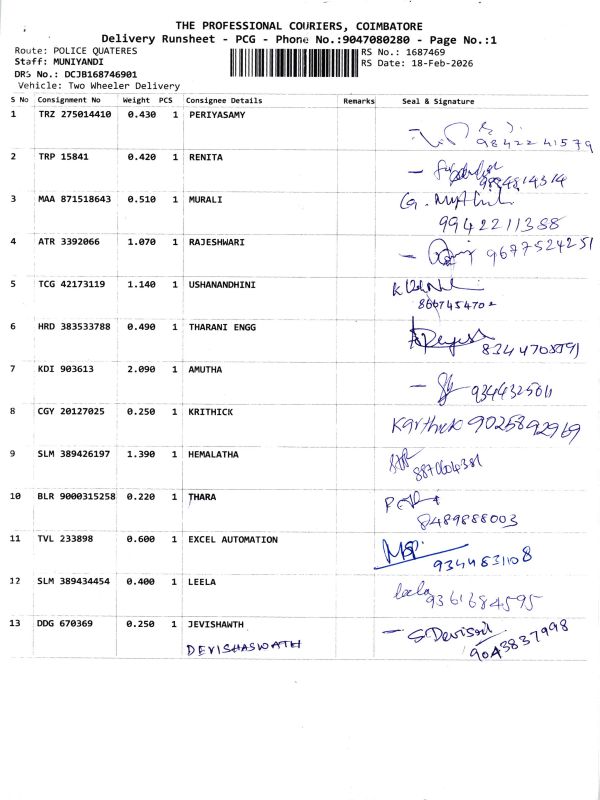 THE PROFESSIONAL COURIERS, COIMBATORE
Delivery Runsheet - PCG - Phone No.:9047080280 - Page No.:1
Route: POLICE QUATERES RS No.: 1687469
Staff: MUNIYANDI RS Date: 18-Feb-2026
DRS No.: DCJB168746901
Vehicle: Two Wheeler Delivery
S No Consignment No Weight PCS Consignee Details Remarks Seal & Signature
1 TRZ 275014410 0.430 1 PERIYASAMY
9842241579
2 TRP 15841 0.420 1 RENITA
3 MAA 871518643 0.510 1 MURALI
9942211388
4 ATR 3392066 1.070 1 RAJESHWARI
9677524251
5 TCG 42173119 1.140 1 USHANANDHINI
8667454702
6 HRD 383533788 0.490 1 THARANI ENGG
7 KDI 903613 2.090 1 AMUTHA
8 CGY 20127025 0.250 1 KRITHICK
Karthick 9025892969
9 SLM 389426197 1.390 1 HEMALATHA
10 BLR 9000315258 0.220 1 THARA
8489888003
11 TVL 233898 0.600 1 EXCEL AUTOMATION
9344831108
12 SLM 389434454 0.400 1 LEELA
leela
9361684595
13 DDG 670369 0.250 1 JEVISHAWTH
DEVISHASWATH
9043837998